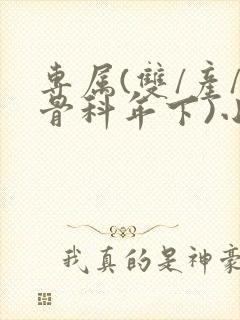 專属(雙/産/
骨科年下)
我真的是神豪